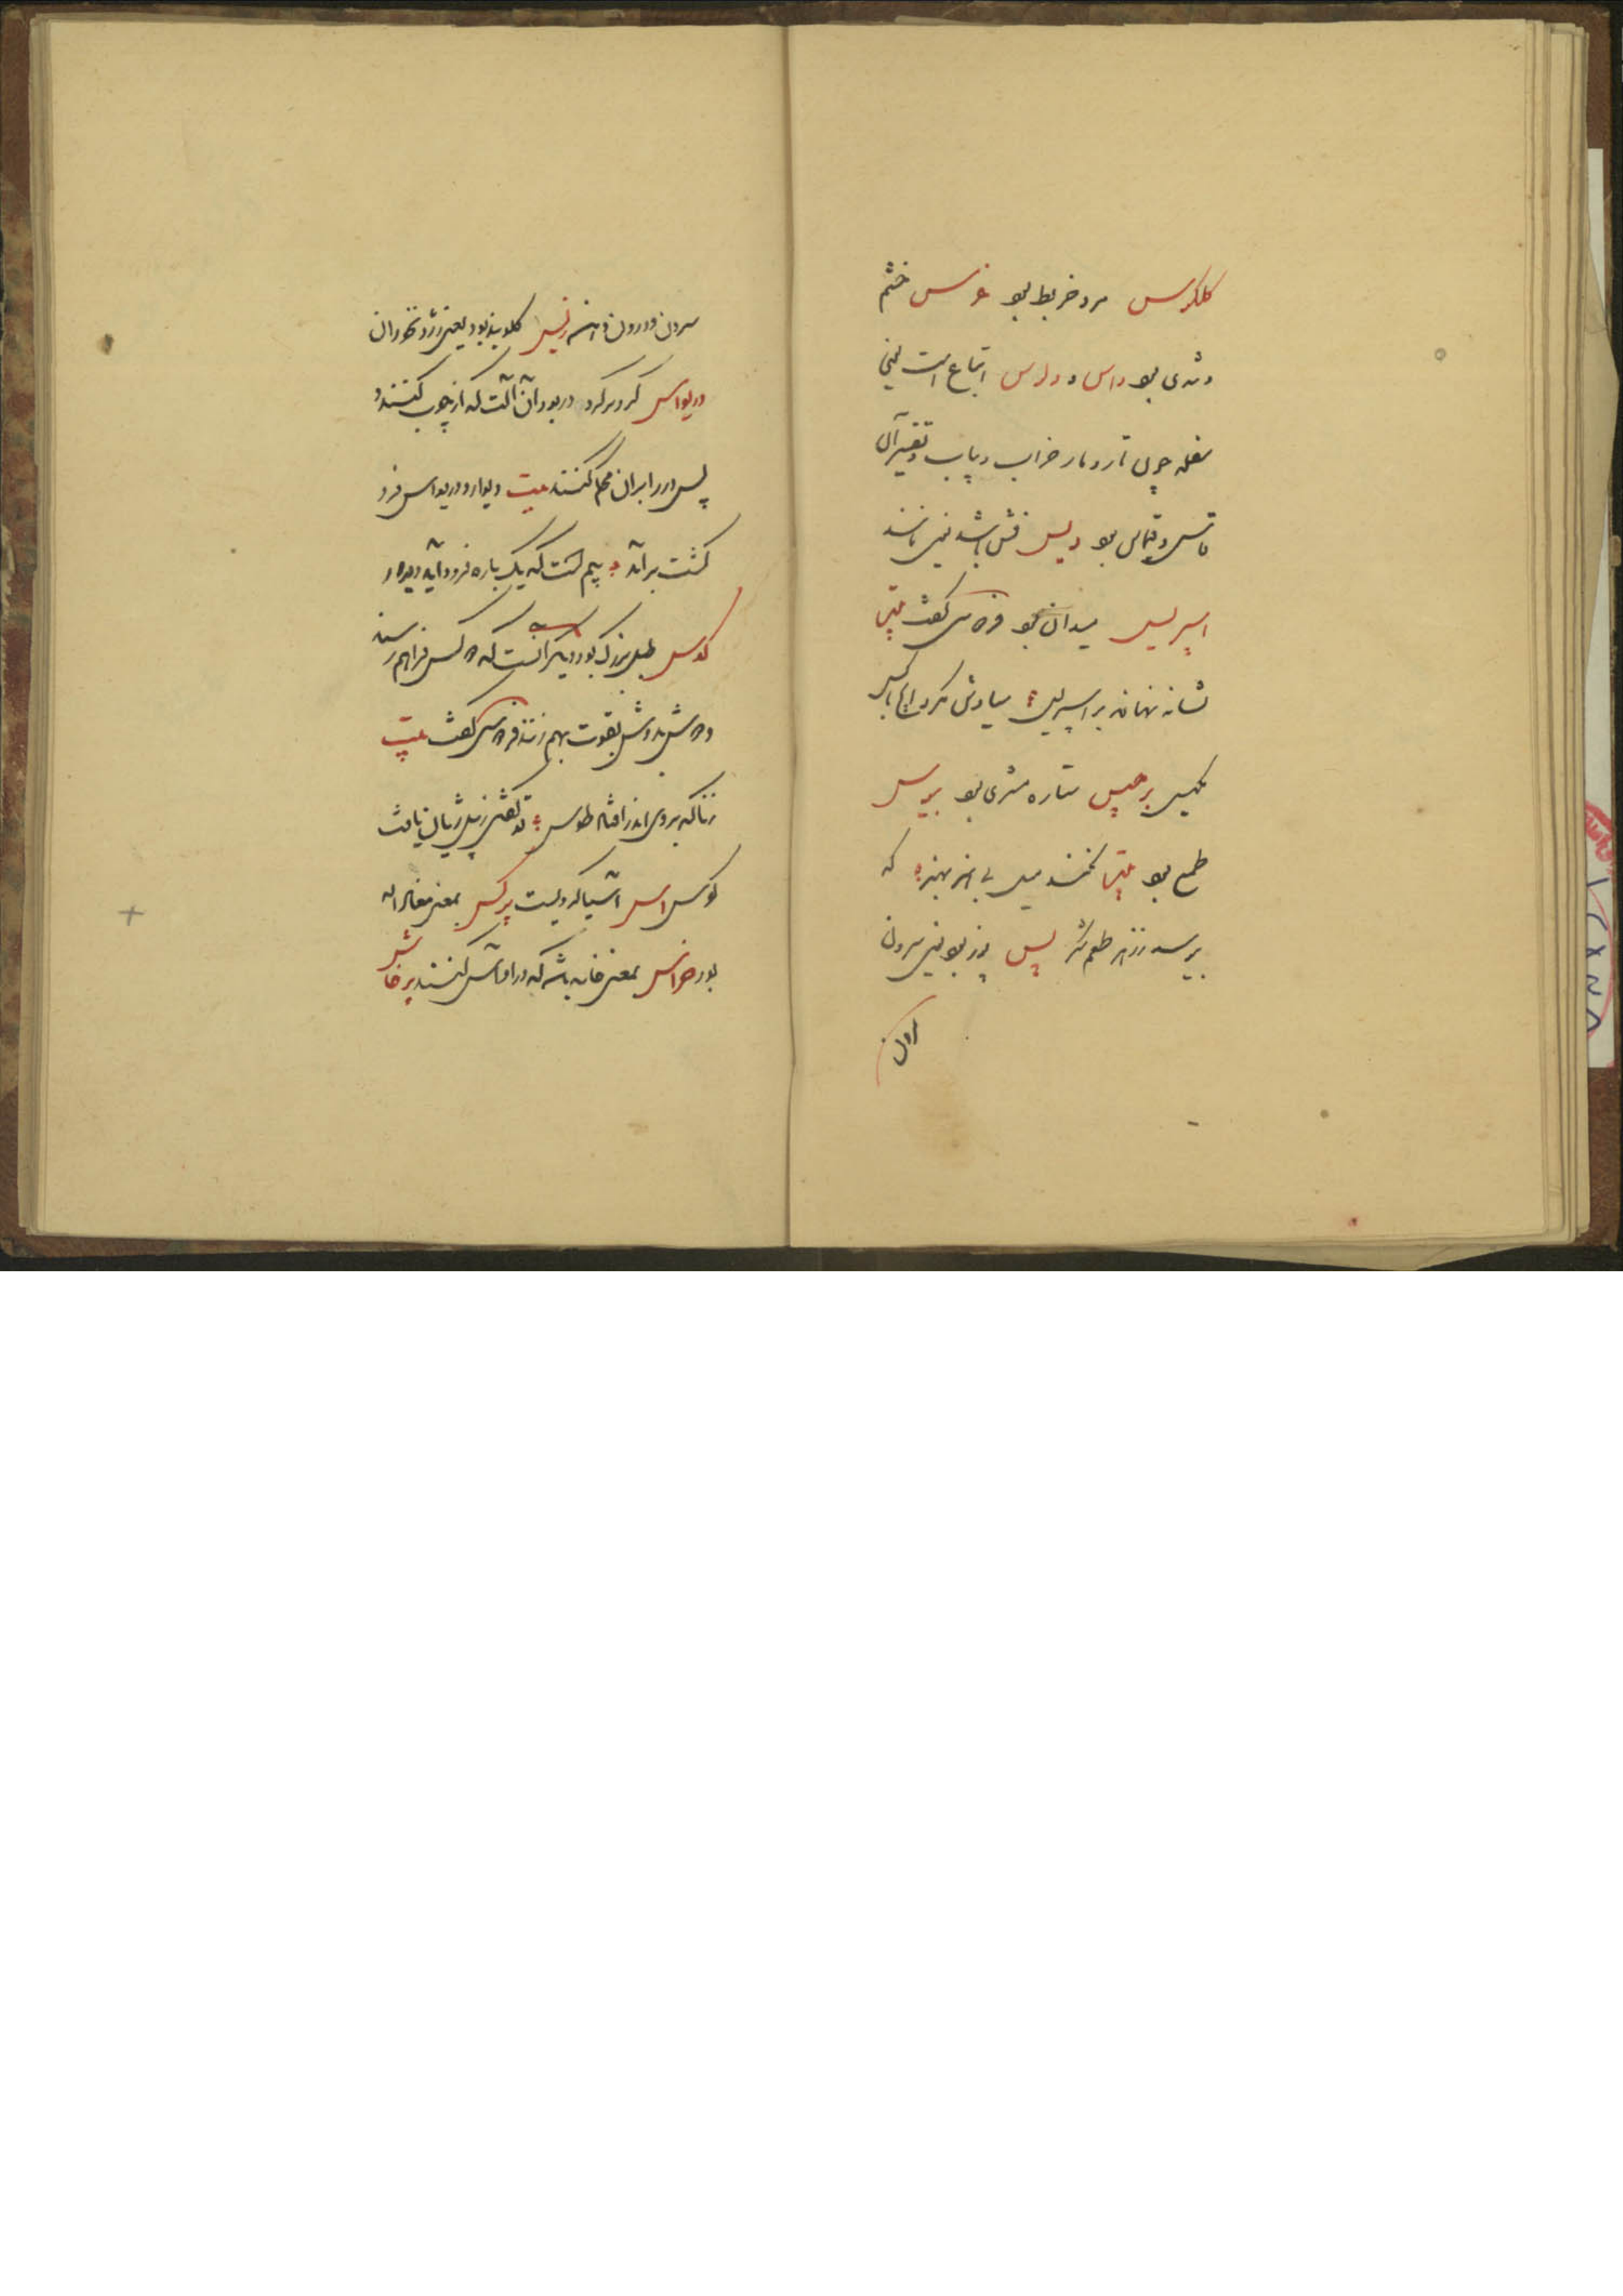 کالوس مردخربط بود غرس خشم
و تندی بود داس و دلوس اتباع است یعنی
سفله چون تارومار خراب و یباب و تفسیرآن
دیس فش باشد یعنی مانند
اسپریس میدان بود فردوسی گفت بیت
نشانه نهادند بر اسپریس سیاوش نکرد ایچ باکس
مکیس برجیس ستاره مشتری بود بیوس
طمع بود بیت نکند میل بی هنر بهنر که
بیوسد ززهر طعم شکر پس پوز بود یعنی بیرون
بیرون
بیرون و درون دهن کلوبنده بود یعنی
دریواس گرد بر گرد در بود و آن آلت که از چوب کنند و
پس در دیوار آن محکم کنند بیت دیوار و دریواس فرو
گشت برآمد بیم است که یک باره فرود آید دیوار
کوس طبل بزرگ بود دیگر آنست که دو کس فراهم رسند
و دوش بدوش بقوت بهم زنند فردوسی گفت بیت
زناگه بروی اندر افتاد طوس تو گفتی ز پیل ژیان یافت
کوس اس آسیا گردیست پرگس بمعنی معاذ الله
بود خراس بمعنی خانه باشد که درو آس کنند پرخاش